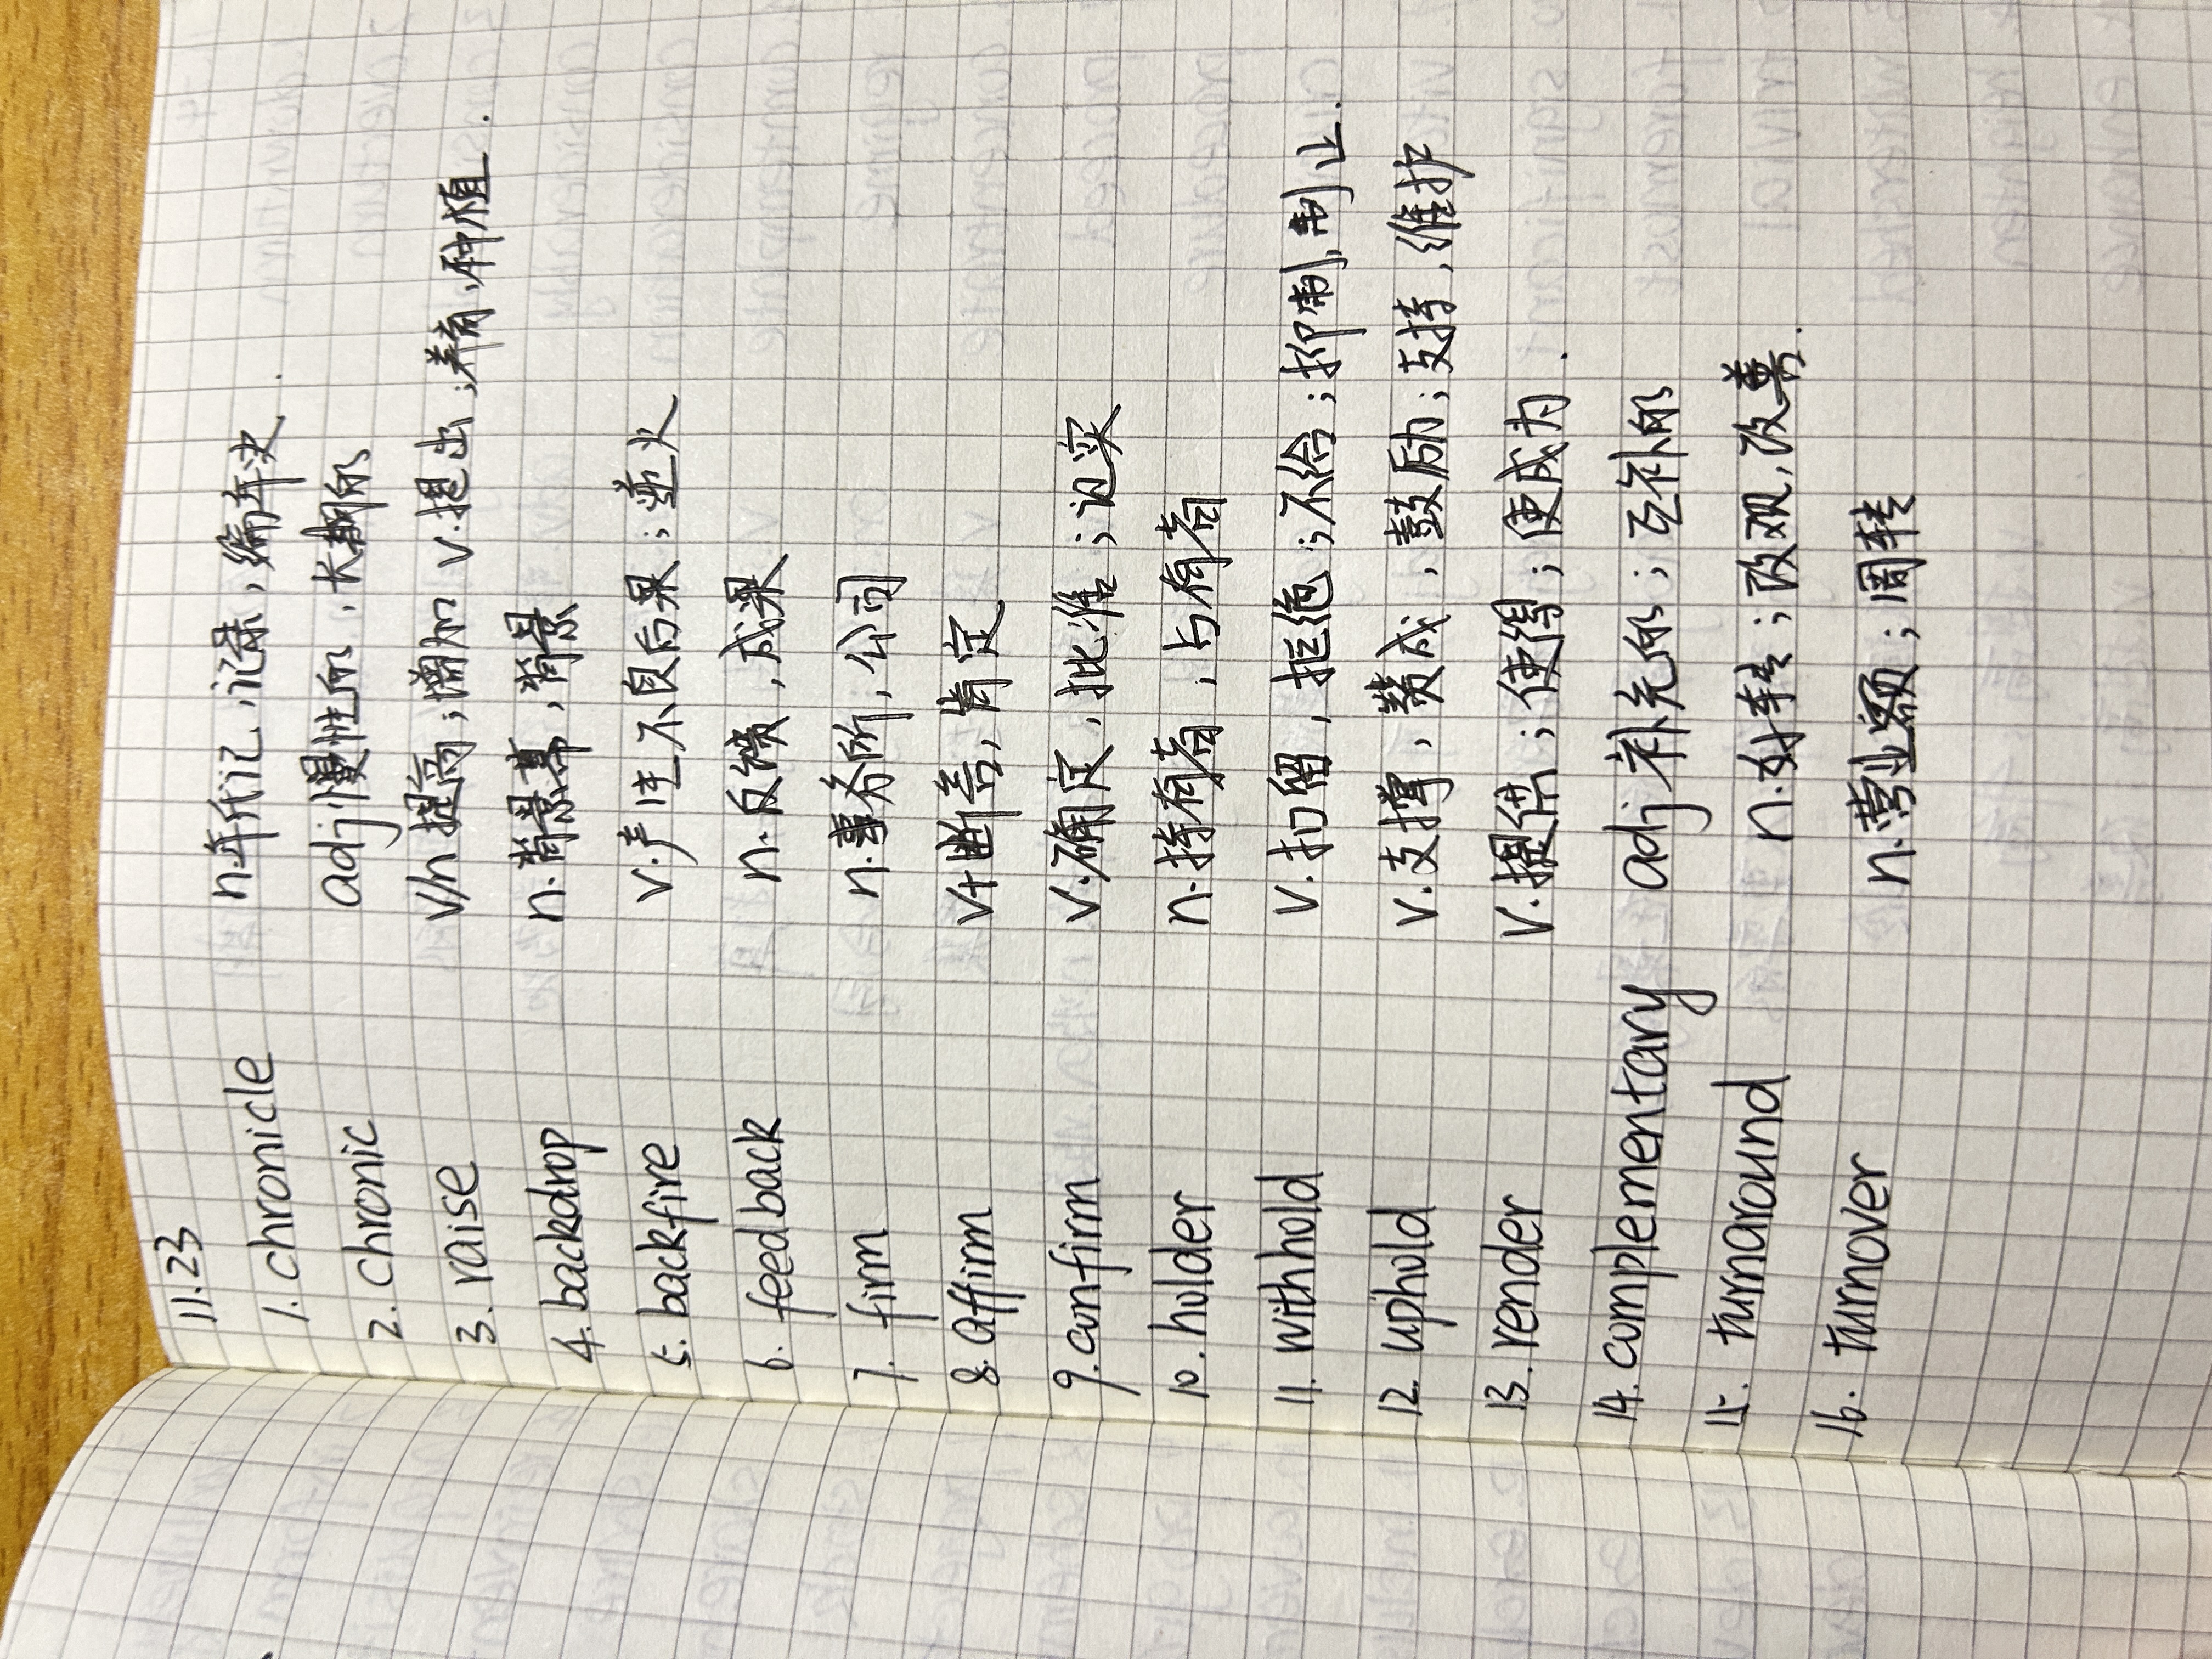 11.23
1. chronicle n.年代记，记录，编年史.
2. chronic adj慢性的，长期的
3. raise v/n 提高；增加 v.提出；养育，种植.
4. backdrop n.背景幕，背景
5. backfire v.产生不良后果；逆火
6. feedback n.反馈，成果
7. firm n.事务所，公司
8. affirm vt断言，肯定
9. confirm v.确定，批准；证实
10. holder n.持有者，占有者
11. withhold v.扣留，拒绝；不给；抑制，制止.
12. uphold v.支撑，赞成，鼓励；支持，维护
13. render v.提供；使得；使成为.
14. complementary adj补充的；互补的
15. turnaround n.好转；改观，改善.
16. turnover n.营业额；周转